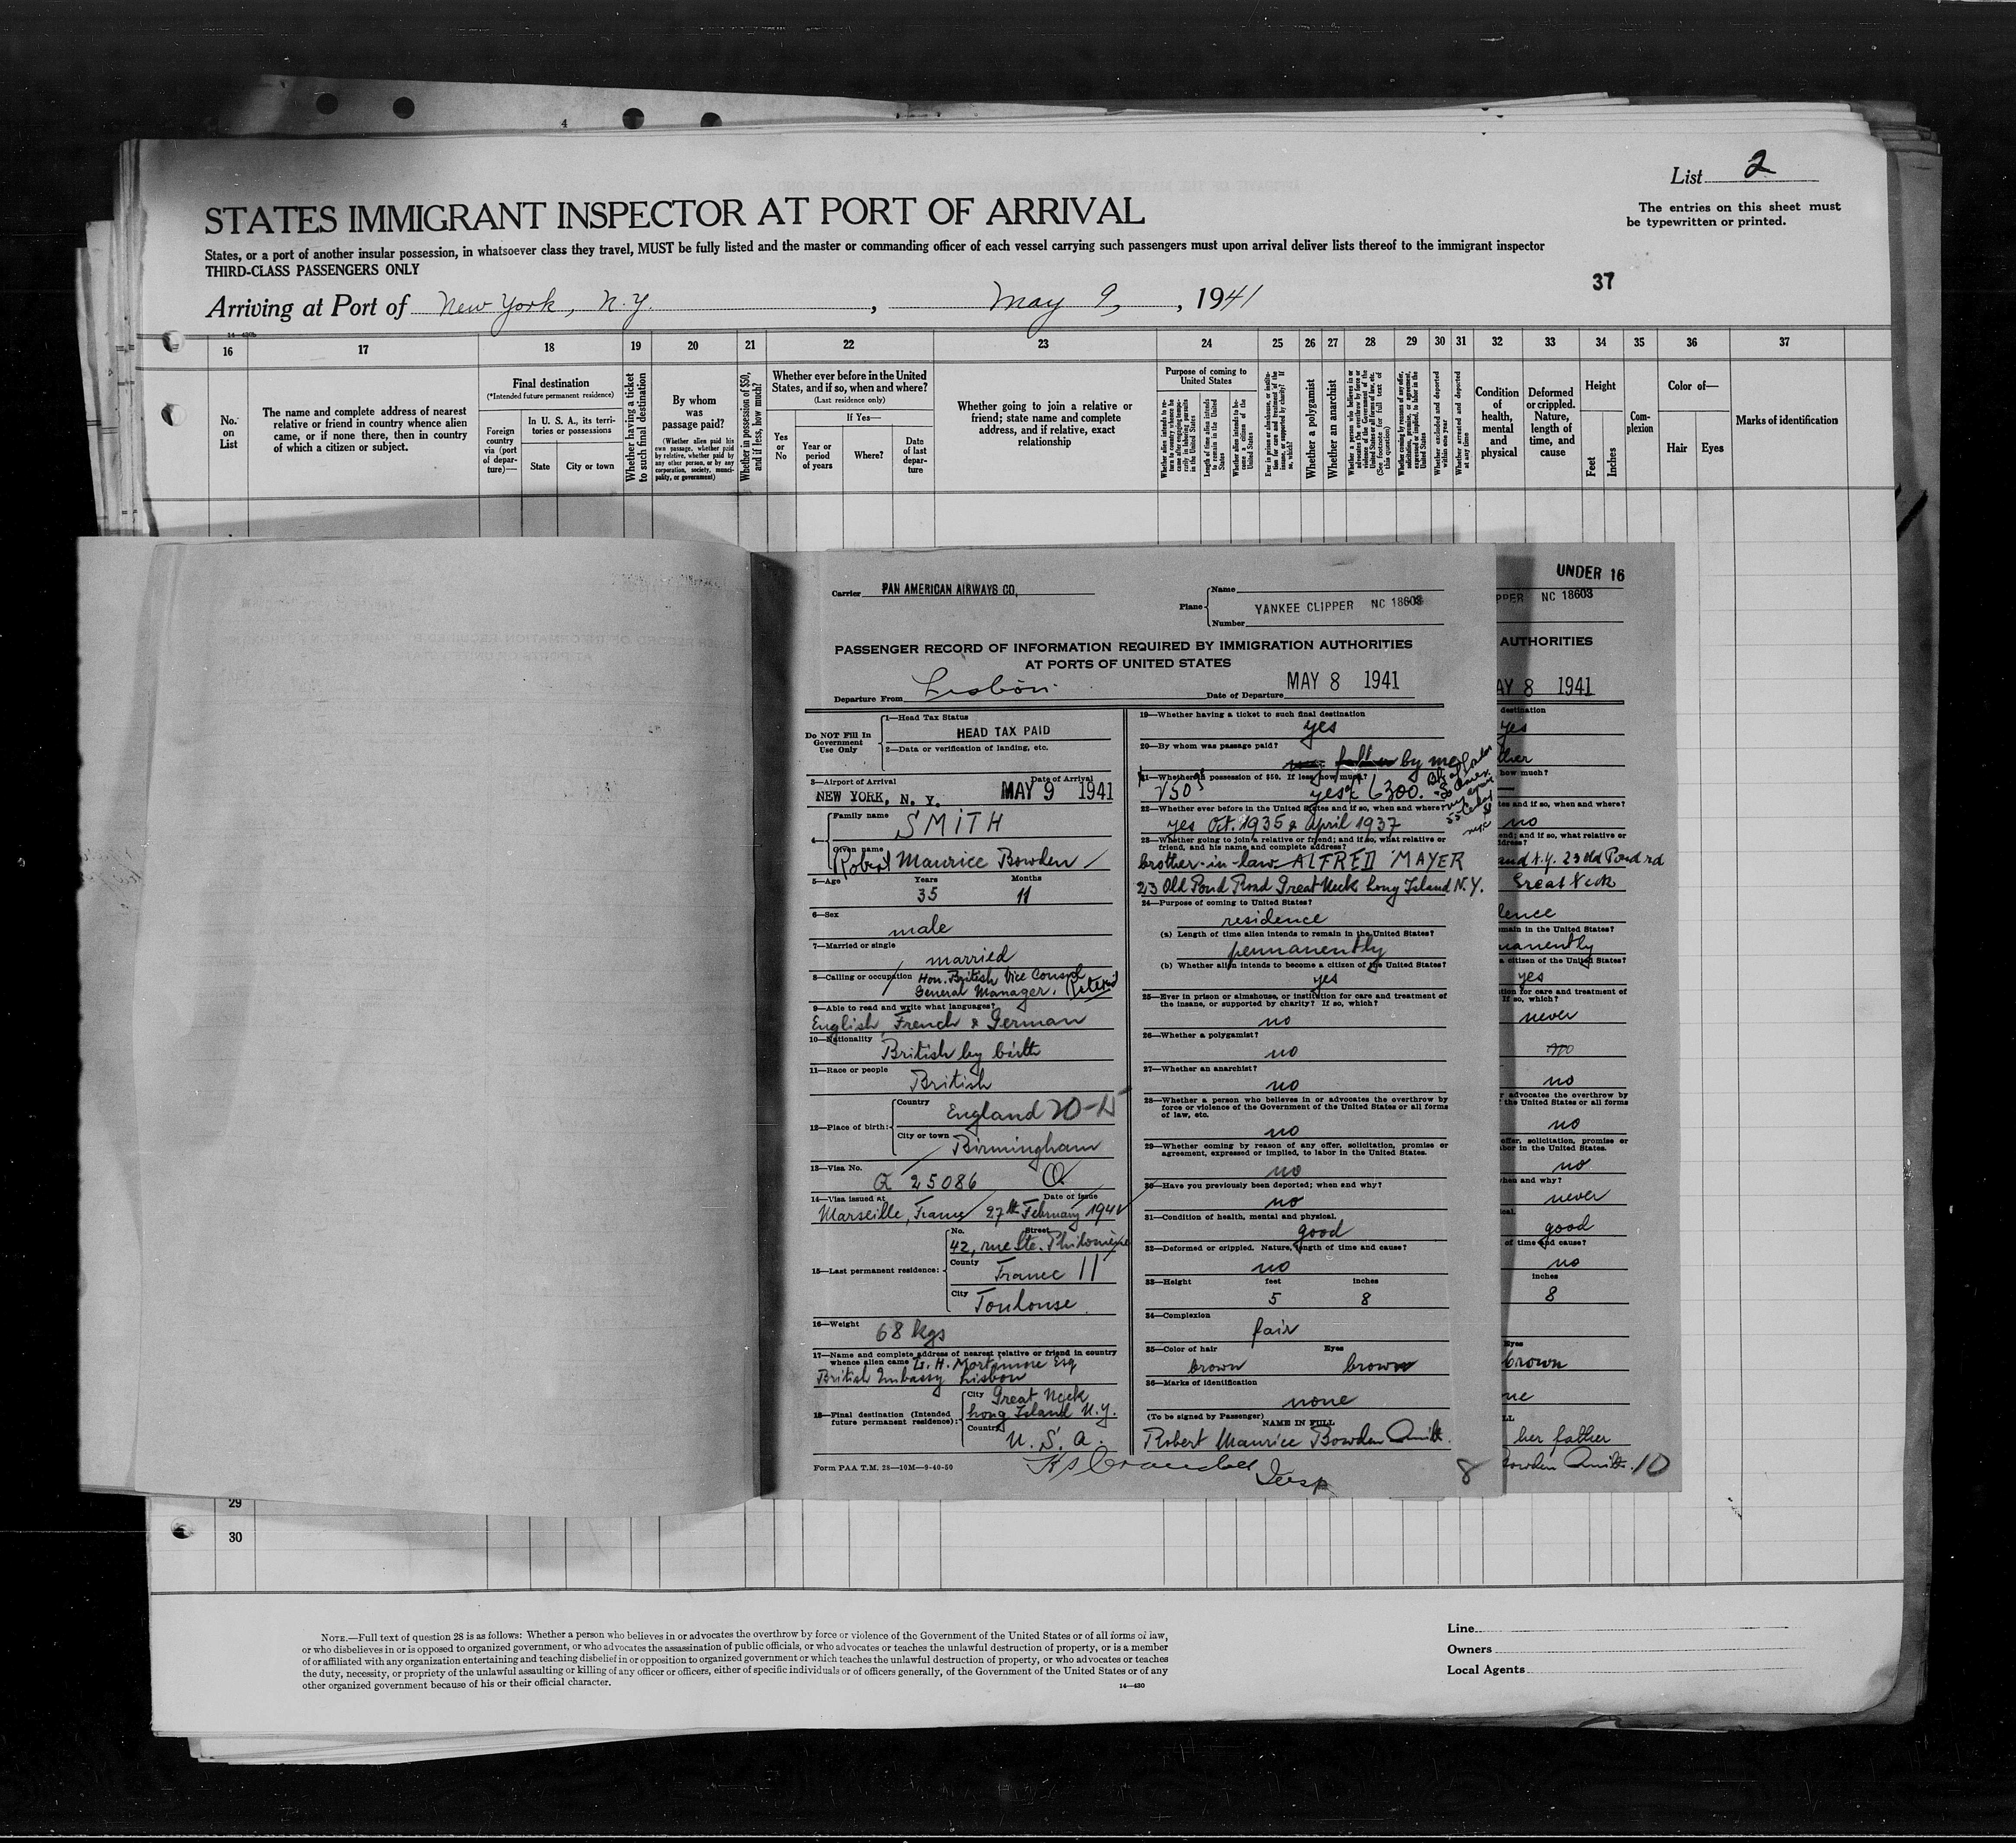 4
List 2
The entries on this sheet must
be typewritten or printed.
STATES IMMIGRANT INSPECTOR AT PORT OF ARRIVAL
States, or a port of another insular possession, in whatsoever class they travel, MUST be fully listed and the master or commanding officer of each vessel carrying such passengers must upon arrival deliver lists thereof to the immigrant inspector
THIRD-CLASS PASSENGERS ONLY
37
Arriving at Port of New York, N.Y. , May 9, , 1941
14—430b
16 17 18 19 20 21 22 23 24 25 26 27 28 29 30 31 32 33 34 35 36 37
No.
on
List
The name and complete address of nearest
relative or friend in country whence alien
came, or if none there, then in country
of which a citizen or subject.
Final destination
(*Intended future permanent residence)
Foreign
country
via (port
of depar-
ture)—
In U. S. A., its terri-
tories or possessions
State
City or town
Whether having a ticket
to such final destination
By whom
was
passage paid?
(Whether alien paid his
own passage, whether paid
by relative, whether paid by
any other person, or by any
corporation, society, munici-
pality, or government)
Whether in possession of $50,
and if less, how much?
Whether ever before in the United
States, and if so, when and where?
(Last residence only)
Yes
or
No
If Yes—
Year or
period
of years
Where?
Date
of last
depar-
ture
Whether going to join a relative or
friend; state name and complete
address, and if relative, exact
relationship
Purpose of coming to
United States
Whether alien intends to re-
turn to country whence he
came after engaging tempo-
rarily in laboring pursuits
in the United States
Length of time alien intends
to remain in the United
States
Whether alien intends to be-
come a citizen of the
United States
Ever in prison or almshouse, or institu-
tion for care and treatment of the
insane, or supported by charity? If
so, which?
Whether a polygamist
Whether an anarchist
Whether a person who believes in or
advocates the overthrow by force or
violence of the Government of the
United States or all forms of law, etc.
(See footnote for full text of
this question)
Whether coming by reason of any offer,
solicitation, promise, or agreement,
expressed or implied, to labor in the
United States
Whether excluded and deported
within one year
Whether arrested and deported
at any time
Condition
of
health,
mental
and
physical
Deformed
or crippled.
Nature,
length of
time, and
cause
Height
Feet
Inches
Com-
plexion
Color of—
Hair
Eyes
Marks of identification
Carrier PAN AMERICAN AIRWAYS CO.
Plane
Name
YANKEE CLIPPER NC 18603
Number
PASSENGER RECORD OF INFORMATION REQUIRED BY IMMIGRATION AUTHORITIES
AT PORTS OF UNITED STATES
Departure From Lisbon Date of Departure MAY 8 1941
Do NOT Fill In
Government
Use Only
1—Head Tax Status
HEAD TAX PAID
2—Data or verification of landing, etc.
3—Airport of Arrival Date of Arrival
NEW YORK, N. Y. MAY 9 1941
4—
Family name
SMITH
Given name
Robert Maurice Bowden
5—Age Years Months
35 11
6—Sex
male
7—Married or single
married
8—Calling or occupation Hon. British Vice Consul
General Manager. Retired
9—Able to read and write what languages?
English, French & German
10—Nationality
British by birth
11—Race or people
British
12—Place of birth:
Country
England 20-15
City or town
Birmingham
13—Visa No.
Q 25086 Q
14—Visa issued at Date of issue
Marseille, France 27th February 1941
15—Last permanent residence:
No. Street
42, rue Ste. Philomène
County
France 11
City
Toulouse
16—Weight
68 kgs
17—Name and complete address of nearest relative or friend in country
whence alien came H. Mortimore Esq
British Embassy Lisbon
18—Final destination (Intended
future permanent residence):
City Great Neck
Long Island N.Y.
Country
U. S. A.
Form PAA T.M. 28—10M—9-40-50
19—Whether having a ticket to such final destination
yes
20—By whom was passage paid?
by me
21—Whether in possession of $50. If less, how much?
√50 yes 6300.
22—Whether ever before in the United States and if so, when and where?
yes Oct. 1935 & April 1937
23—Whether going to join a relative or friend; and if so, what relative or
friend, and his name and complete address?
brother-in-law ALFRED MAYER
23 Old Pond Road Great Neck Long Island N.Y.
24—Purpose of coming to United States?
residence
(a) Length of time alien intends to remain in the United States?
permanently
(b) Whether alien intends to become a citizen of the United States?
yes
25—Ever in prison or almshouse, or institution for care and treatment of
the insane, or supported by charity? If so, which?
no
26—Whether a polygamist?
no
27—Whether an anarchist?
no
28—Whether a person who believes in or advocates the overthrow by
force or violence of the Government of the United States or all forms
of law, etc.
no
29—Whether coming by reason of any offer, solicitation, promise or
agreement, expressed or implied, to labor in the United States.
no
30—Have you previously been deported; when and why?
no
31—Condition of health, mental and physical.
good
32—Deformed or crippled. Nature, length of time and cause?
no
33—Height feet inches
5 8
34—Complexion
fair
35—Color of hair Eyes
brown brown
36—Marks of identification
none
(To be signed by Passenger)
NAME IN FULL
Robert Maurice Bowden Smith.
Insp
8
UNDER 16
PPER NC 18603
AUTHORITIES
AY 8 1941
destination
yes
ther
how much?
tes and if so, when and where?
no
end; and if so, what relative or
dress?
and N.Y. 23 old Pond rd
Great Neck
dence
emain in the United States?
manently
a citizen of the United States?
yes
tion for care and treatment of
If so, which?
never
no
no
r advocates the overthrow by
the United States or all forms
no
offer, solicitation, promise or
abor in the United States.
no
hen and why?
never
ical.
good
of time and cause?
no
inches
8
Eyes
brown
ne
LL
her father
Bowden Smith. 10
29
30
NOTE.—Full text of question 28 is as follows: Whether a person who believes in or advocates the overthrow by force or violence of the Government of the United States or of all forms of law,
or who disbelieves in or is opposed to organized government, or who advocates the assassination of public officials, or who advocates or teaches the unlawful destruction of property, or is a member
of or affiliated with any organization entertaining and teaching disbelief in or opposition to organized government or which teaches the unlawful destruction of property, or who advocates or teaches
the duty, necessity, or propriety of the unlawful assaulting or killing of any officer or officers, either of specific individuals or of officers generally, of the Government of the United States or of any
other organized government because of his or their official character.
14—430
Line
Owners
Local Agents